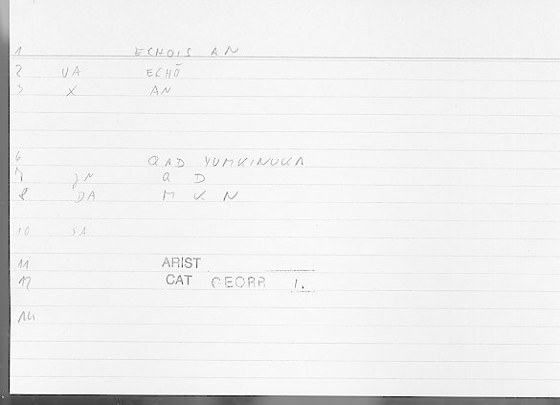 1 ECHOIS AN
2 VA ECHŌ
3 X AN
6 QAD YUMKINUKA
7 gN Q D
8 DA M K N
10 SA
11 ARIST
12 CAT GEORR 1.
14